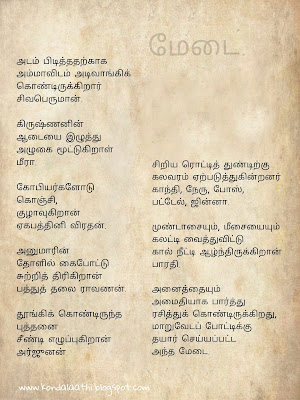 மேடை
அடம் பிடித்ததற்காக
அம்மாவிடம் அடிவாங்கிக்
கொண்டிருக்கிறார்
சிவபெருமான்.
கிருஷ்ணனின்
ஆடையை இழுத்து
அழுகை மூட்டுகிறாள்
மீரா.
கோபியர்களோடு
கொஞ்சி,
குழாவுகிறான்
ஏகபத்தினி விரதன்.
அனுமாரின்
தோளில் கைபோட்டு
சுற்றித் திரிகிறான்
பத்துத் தலை ராவணன்.
தூங்கிக் கொண்டிருந்த
புத்தனை
சீண்டி எழுப்புகிறான்
அர்ஜுனன்
சிறிய ரொட்டித் துண்டிற்கு
கலவரம் ஏற்படுத்துகின்றனர்
காந்தி, நேரு, போஸ்,
பட்டேல், ஜின்னா.
முண்டாசையும், மீசையையும்
கலட்டி வைத்துவிட்டு
கால் நீட்டி ஆழ்ந்திருக்கிறான்
பாரதி.
அனைத்தையும்
அமைதியாக பார்த்து
ரசித்துக் கொண்டிருக்கிறது,
மாறுவேடப் போட்டிக்கு
தயார் செய்யப்பட்ட
அந்த மேடை.
www.kondalaathi.blogspot.com